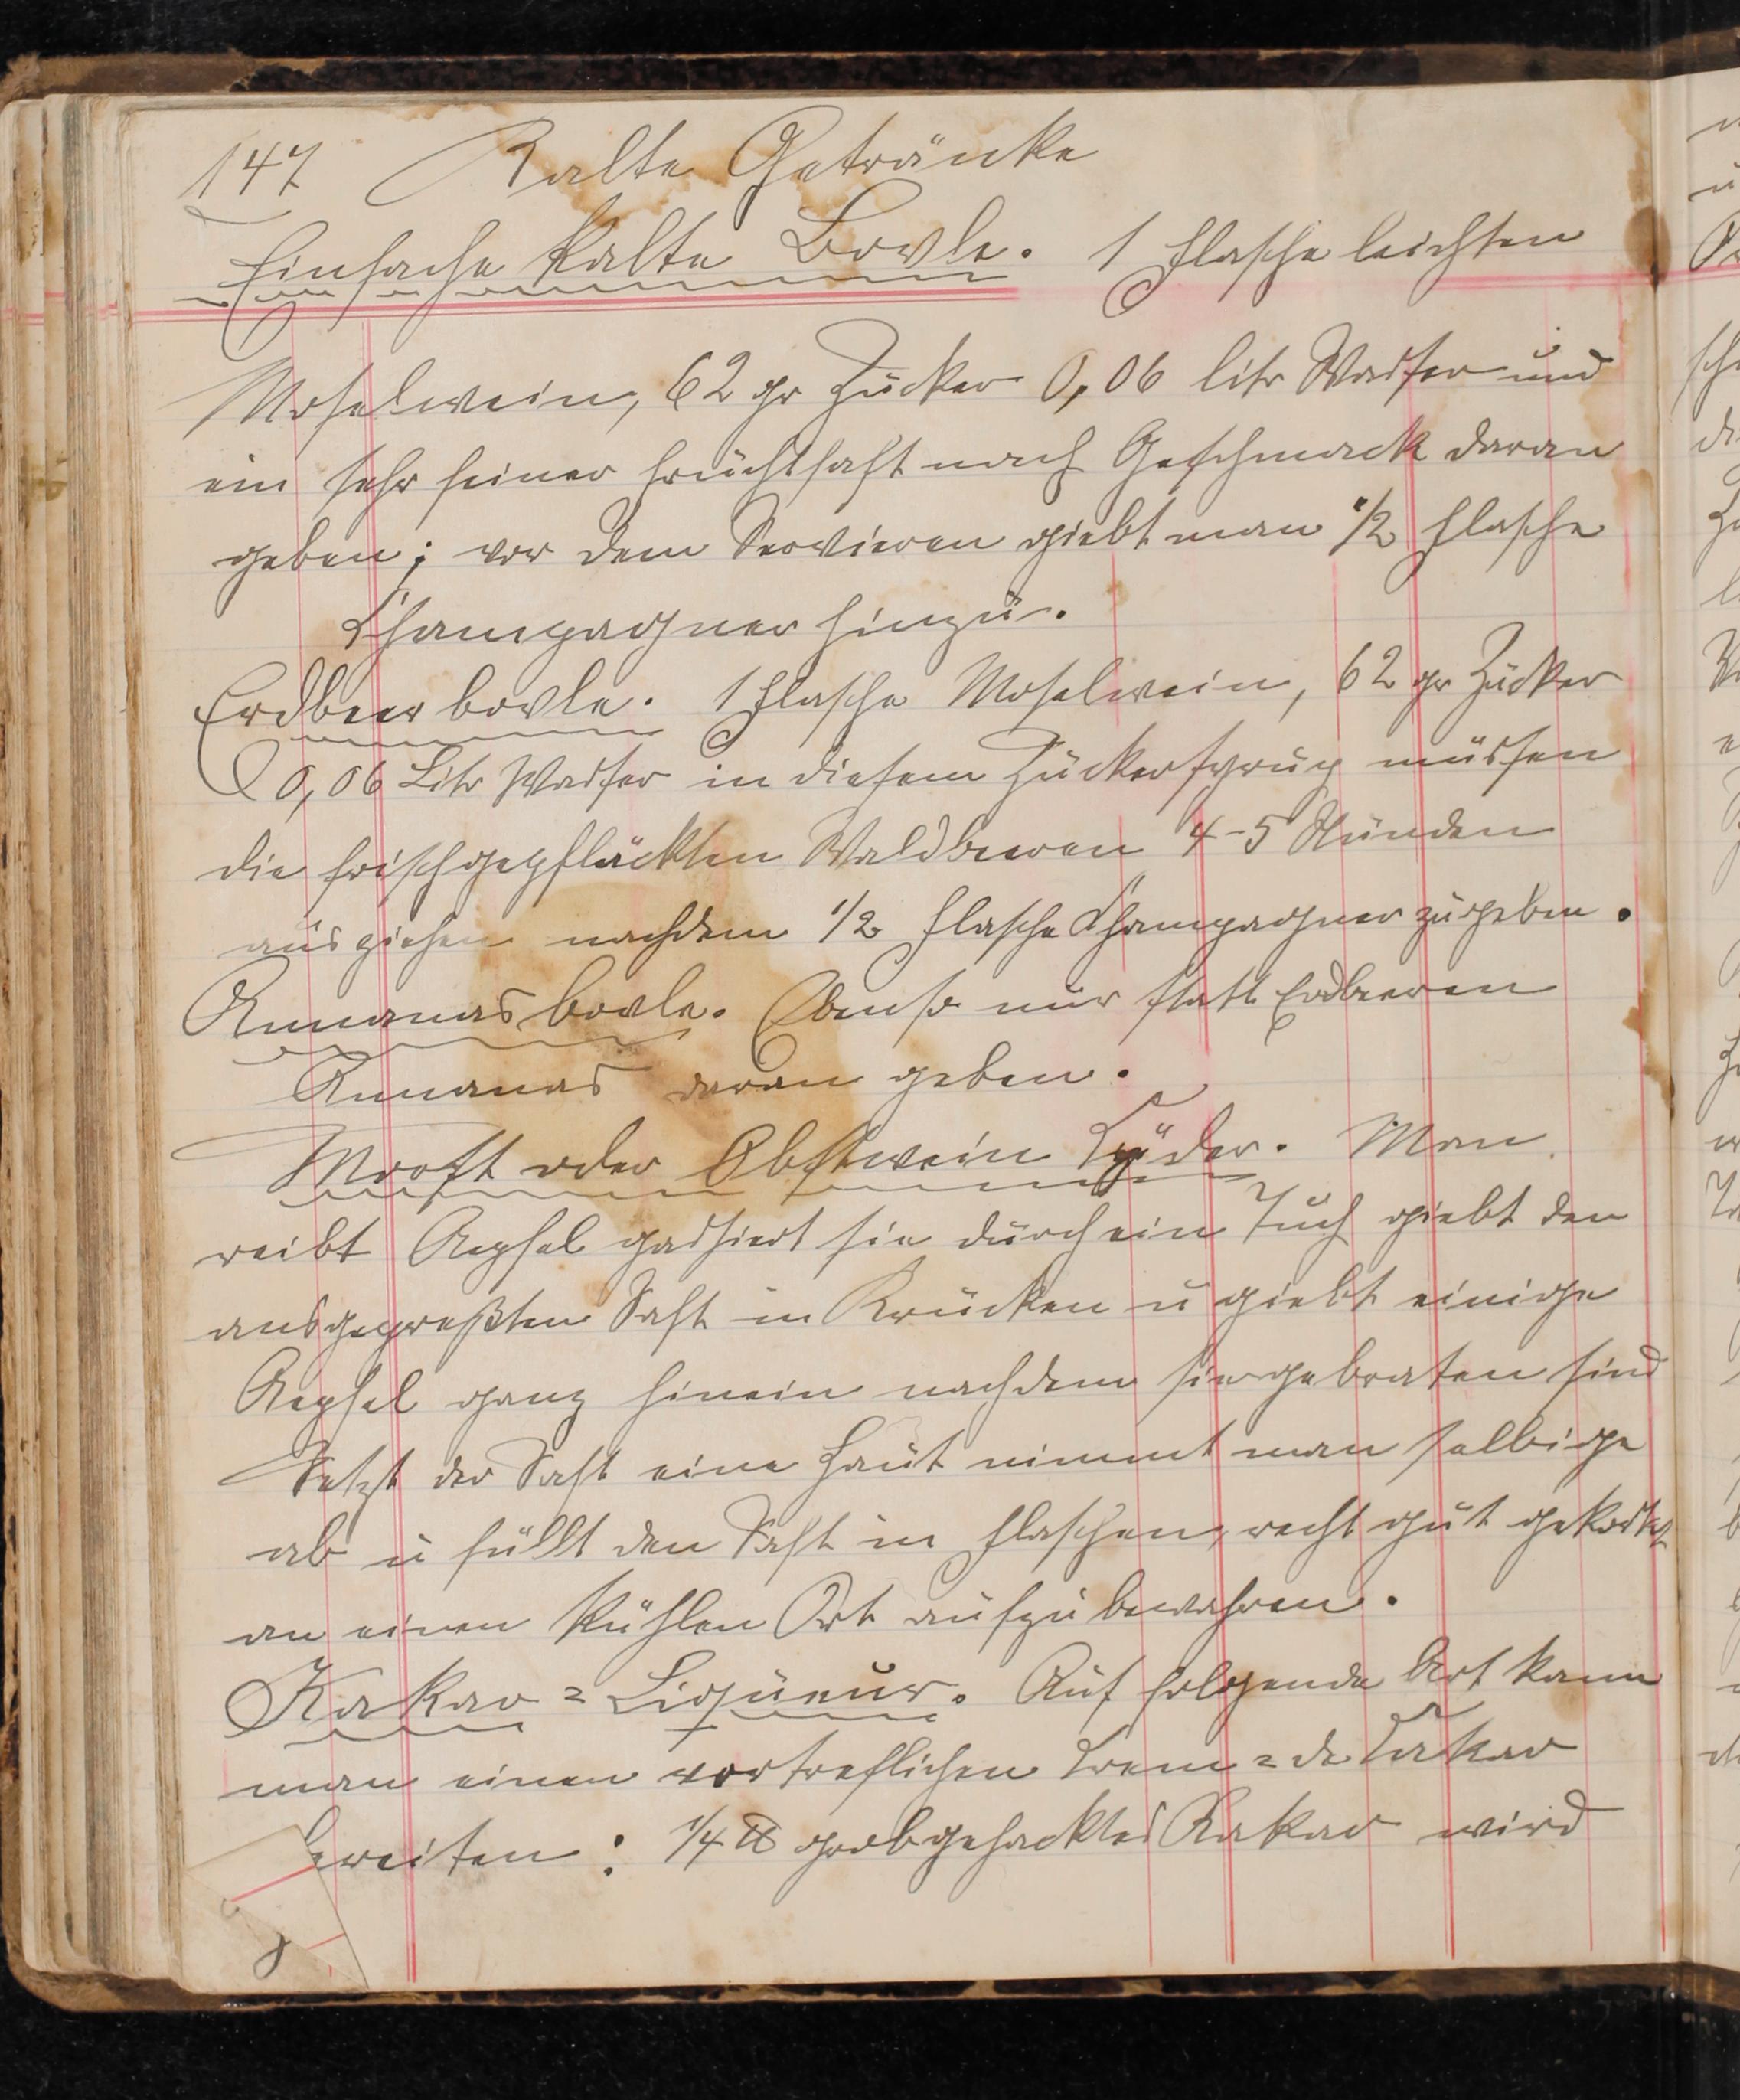 147 Kalte Getränke
Einfache kalte Bovle. 1 Flasche leichten
Moselwein, 62 gr Zucker 0,06 litr Wasser und
ein sehr feiner Fruchtsaft nach Geschmack daran
geben; vor dem Servieren giebt man 1/2 Flasche
Champagner hinzu.
Erdbeerbovle. 1 Flasche Moselwein, 62 gr Zucker
0,06 Litr Wasser in diesem Zuckersyrup müssen
die frischgepflückten Waldbeeren 4-5 Stunden
ausziehen nachdem 1/2 Flasche Champagner zugeben.
Annanasbovle. Ebenso nur statt Erdbeeren
Annanas daran geben.
Moost oder Obstwein Cyder. Man
reibt Aepfel passiert sie durch ein Tuch giebt den
ausgepreßten Saft in Krucken u giebt einige
Aepfel ganz hinein nachdem sie gebraten sind
Setzt der Saft eine Haut nimmt man selbige
ab u füllt den Saft in Flaschen, recht gut gekorkt
an einen kühlen Ort aufzubewahren.
Kakao = Liqueur. Auf folgende Art kann
man einen vortreflichen Crem = de Cakao
bereiten: 1/4 ℔ grobgehacktes Kakao wird